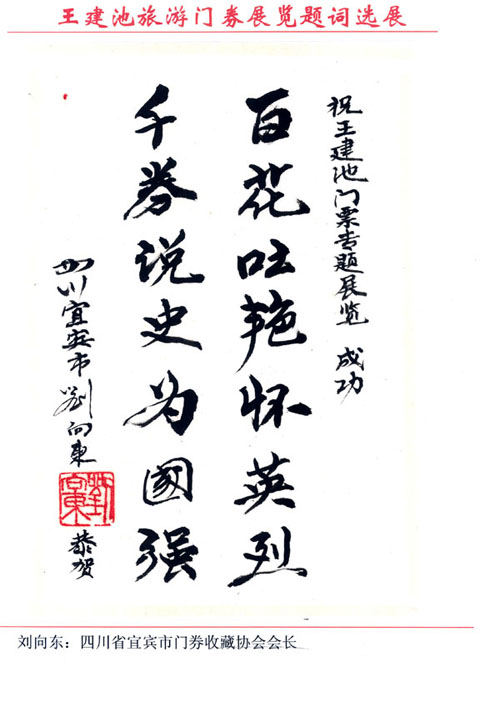 王建池旅游门券展览题词选展
祝王建池门票专题展览 成功
百花吐艳怀英烈
千券说史为國强
四川宜宾市劉向东
恭贺
刘向东：四川省宜宾市门券收藏协会会长